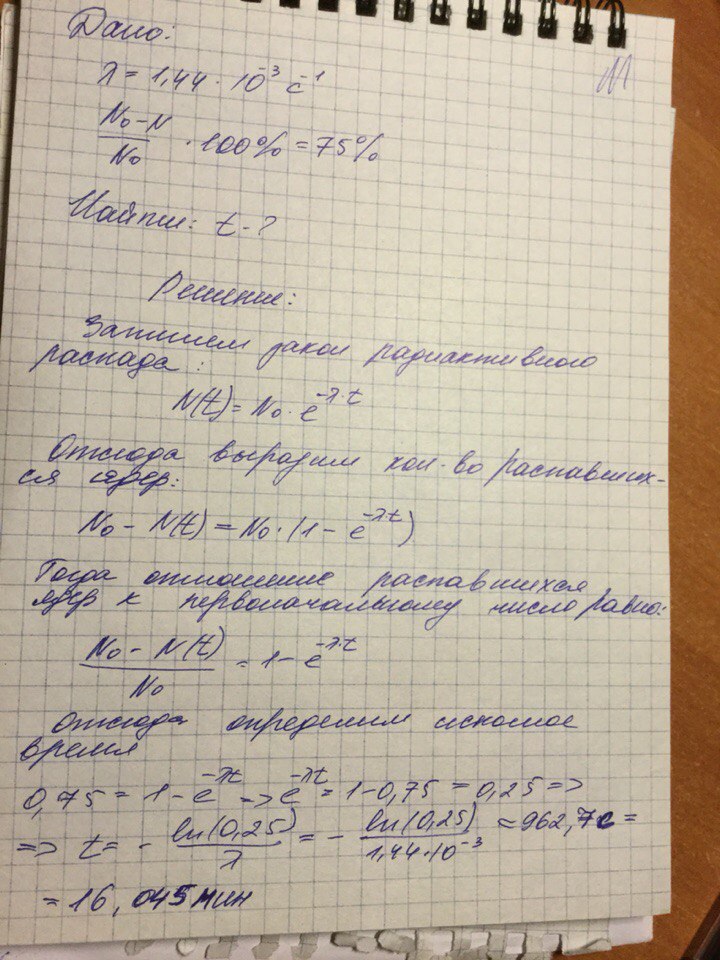 Дано:
λ = 1,44 · 10⁻³ с⁻¹
(N₀ - N)/N₀ · 100% = 75%
Найти: t - ?
Решение:
Запишем закон радиактивного
распада:
N(t) = N₀ · e^(-λ·t)
Отсюда выразим кол-во распавших-
ся ядер:
N₀ - N(t) = N₀ · (1 - e^(-λ·t))
Тогда отношение распавшихся
ядер к первоначальному число равно:
(N₀ - N(t))/N₀ = 1 - e^(-λ·t)
Отсюда определим искомое
время
0,75 = 1 - e^(-λt) => e^(-λt) = 1 - 0,75 = 0,25 =>
=> t = - ln(0,25)/λ = - ln(0,25)/(1,44·10⁻³) ≈ 962,7с =
= 16,045 мин